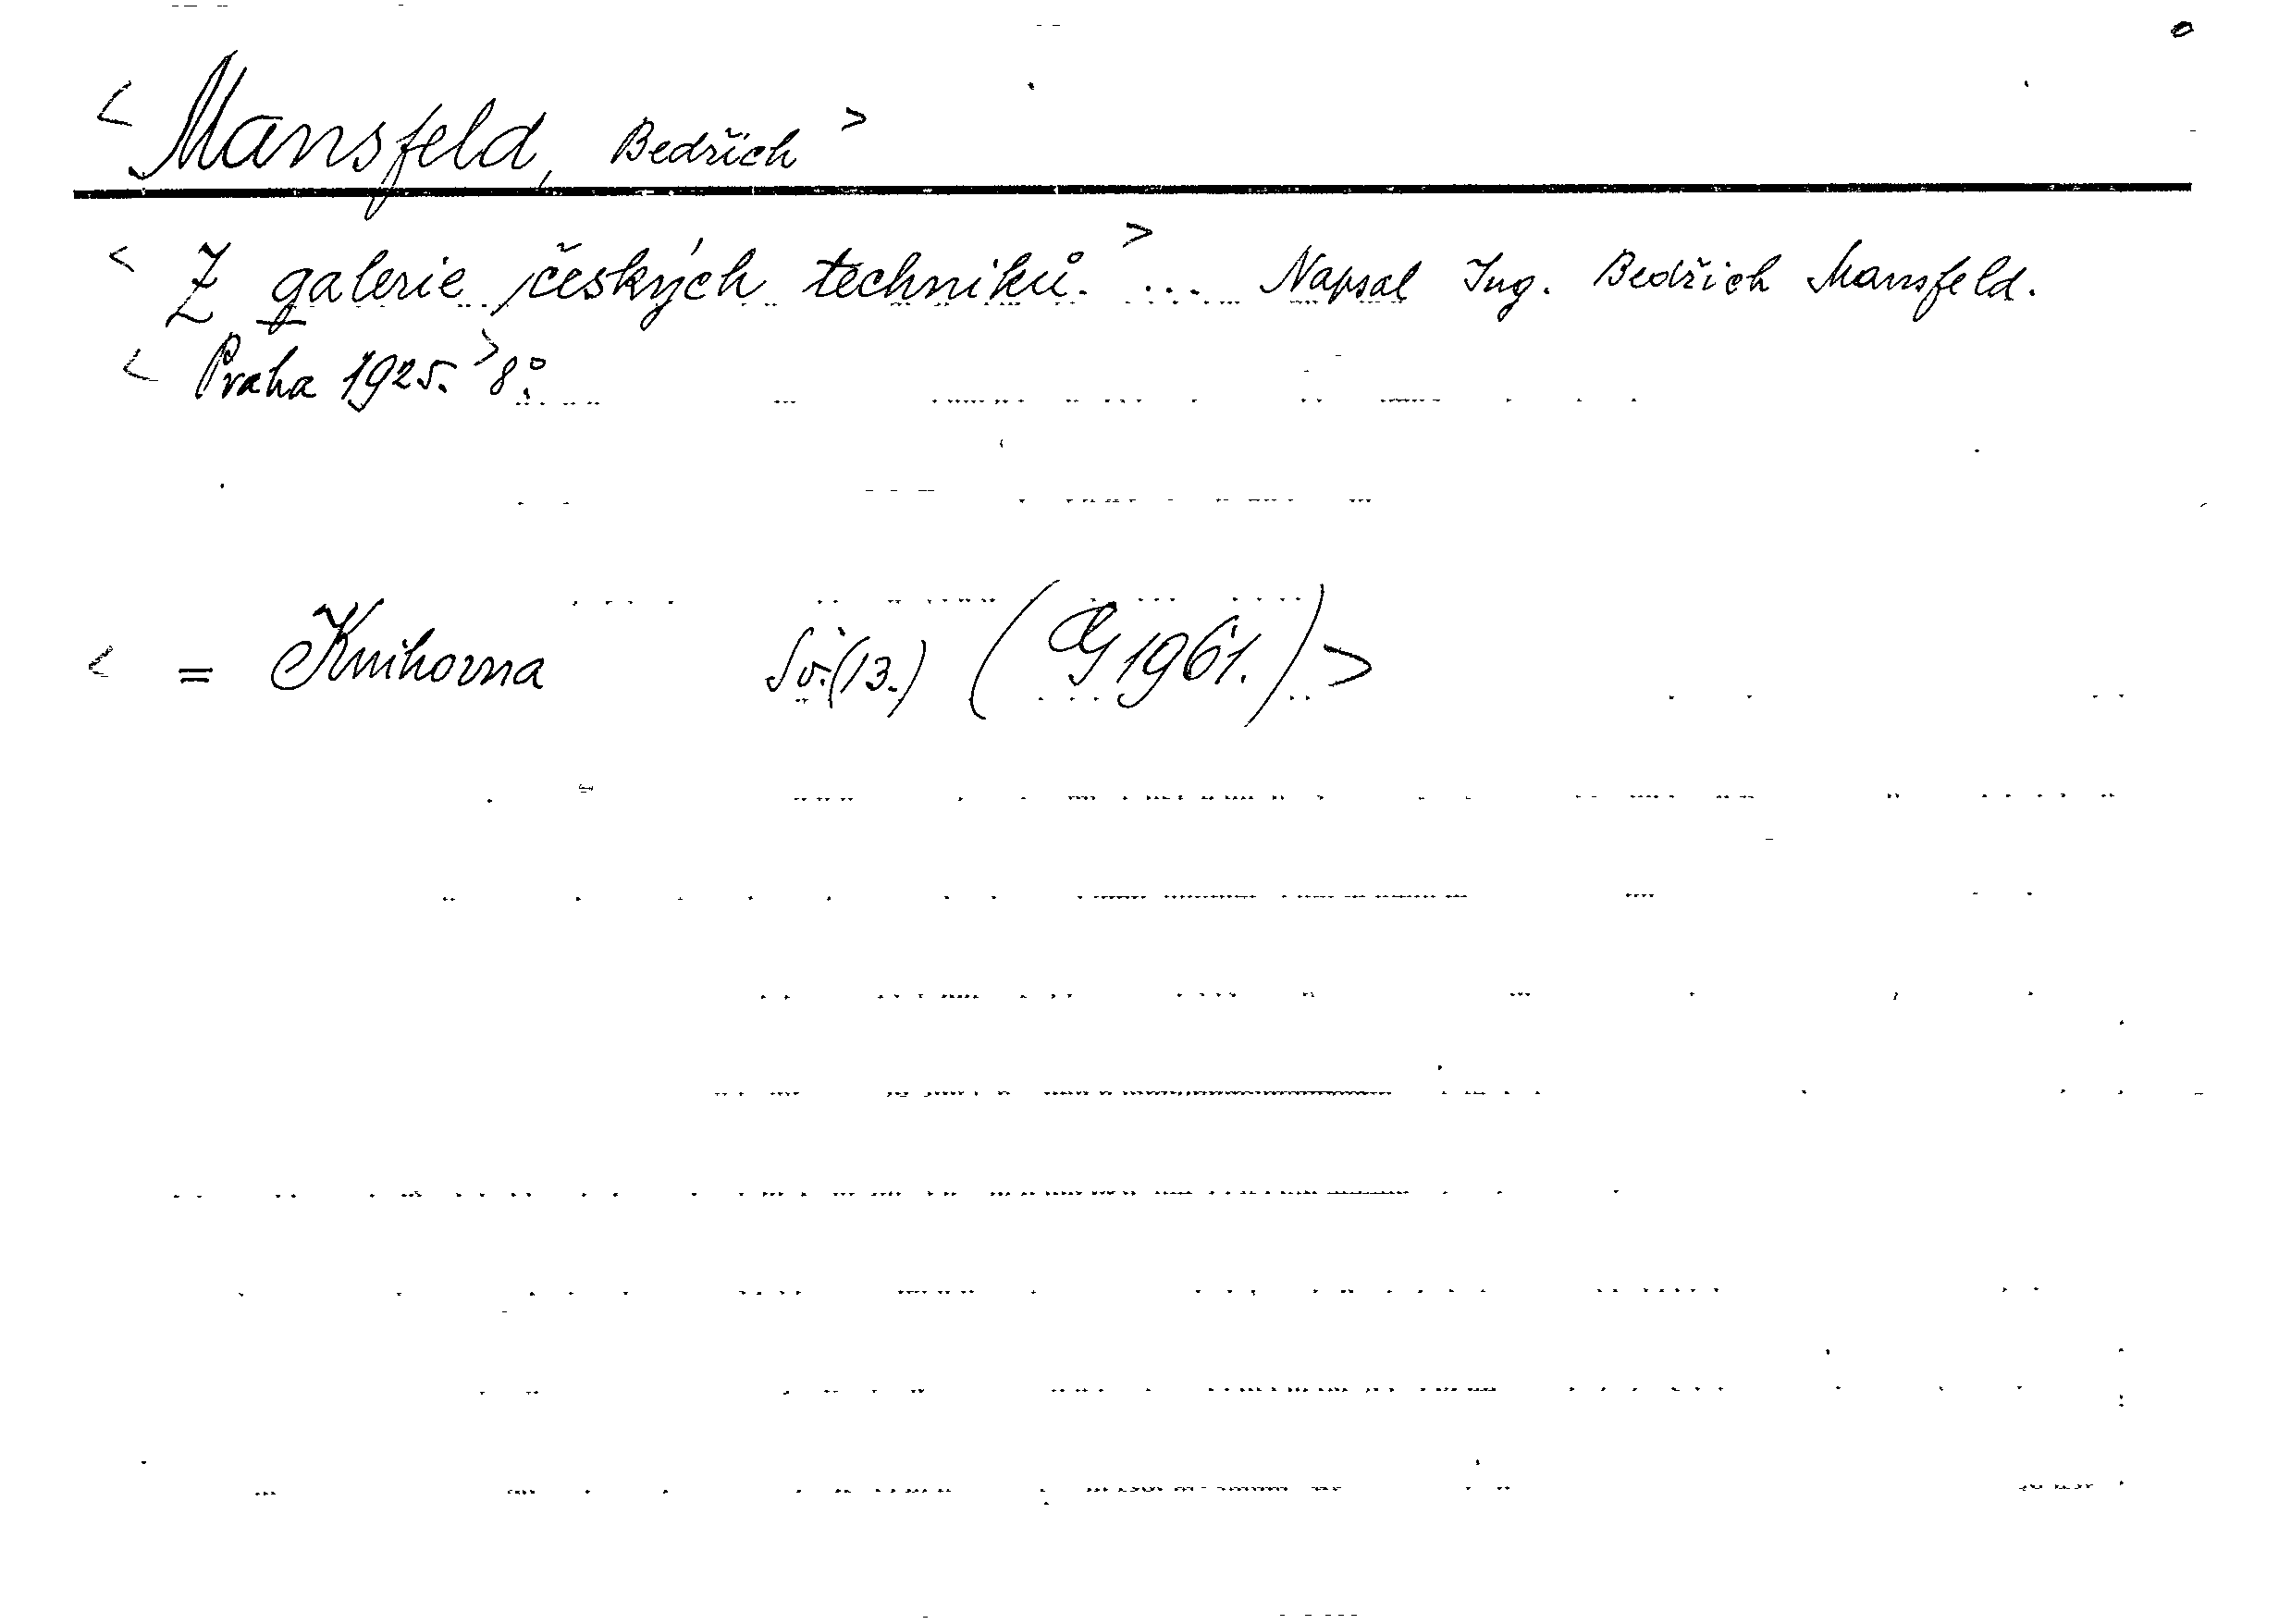 < Mansfeld, Bedřich >
< Z galerie českých techniků. > ... Napsal Ing. Bedřich Mansfeld.
< Praha 1925. > 8°.
< = Knihovna Sv. (13.) ( 1961.) >